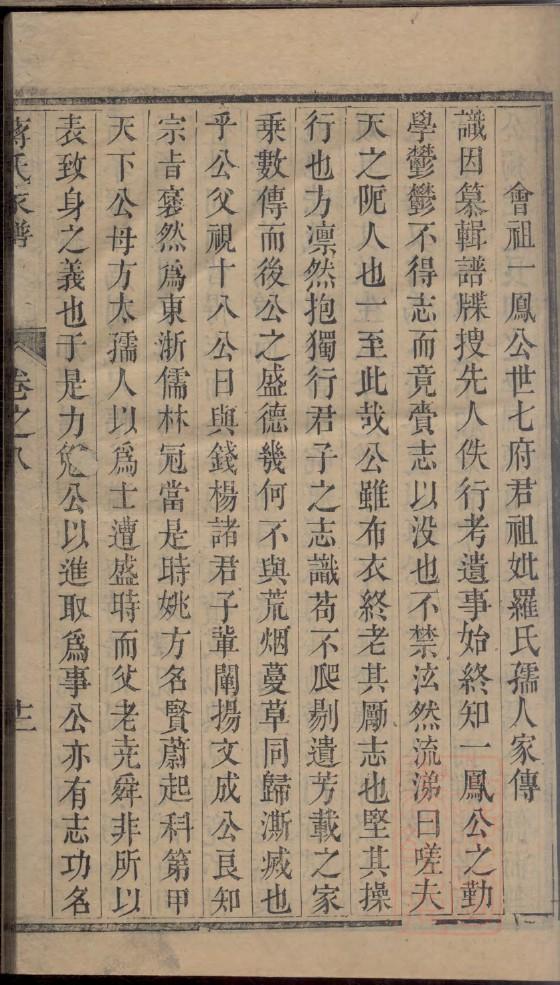 會祖一鳳公世七府君祖妣羅氏孺人家傳
識因纂輯譜牒捜先人佚行考遺事始終知一鳳公之勤
學鬱鬱不得志而竟賷志以没也不禁泫然流涕曰嗟夫
天之阨人也一至此哉公雖布衣終老其厲志也堅其操
行也方凛然抱獨行君子之志識苟不爬剔遺芳載之家
乘數傳而後公之盛德幾何不與荒烟蔓草同歸澌滅也
乎公父視十八公日與錢楊諸君子輩闡揚文成公良知
宗旨褎然爲東浙儒林冠當是時姚方名賢蔚起科第甲
天下公母方太孺人以爲士遭盛時而父老尭舜非所以
表致身之義也于是力勉公以進取爲事公亦有志功名
蔣氏家譜
卷之八
十二